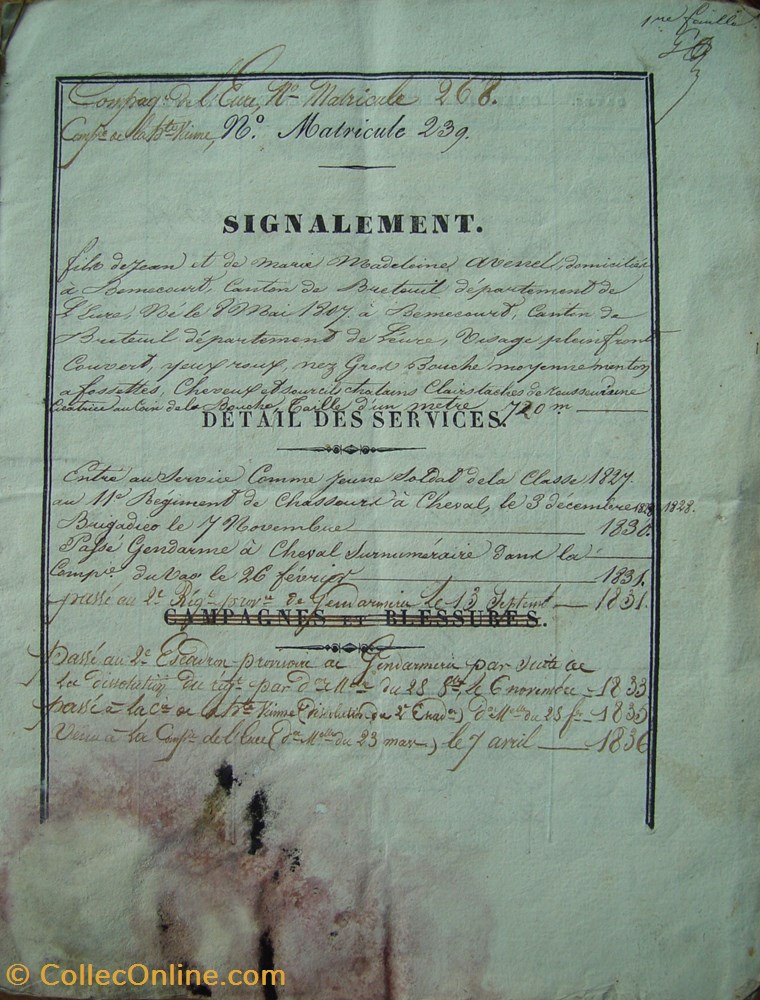 1re feuille
Compag. de l'Eure, No. Matricule 268.
Compie de la Hte Vienne, No. Matricule 239.
SIGNALEMENT.
fils de Jean et de Marie Madeleine Avenel, domicilié
à Bemecourt, Canton de Breteuil département de
L'Eure, Né le 8 Mai 1807 à Bemecourt, Canton de
Breteuil département de Leure, Visage plein front
Couvert, yeux roux, nez Gros Bouche moyenne menton
a fossettes, Cheveux et sourcils chatains Clairs taches de rousseur une
Cicatrice au coin de la Bouche, Taille d'un metre 720 m
DÉTAIL DES SERVICES.
Entré au Service Comme jeune Soldat de la Classe 1827.
au 11e Régiment de Chasseurs à Cheval, le 3 décembre 1828.
Brigadier le 7 Novembre 1830.
Passé Gendarme à Cheval Surnuméraire dans la
Compie. du Var le 26 février 1831.
passé au 2e Régt prove de Gendarmerie le 13 Septembre 1831.
CAMPAGNES ET BLESSURES.
passé au 2e Escadron provisoire de Gendarmerie par suite de
La dissolution du régt par don Mlle du 25 8bre, le 6 novembre 1833
passé à la Cie de la Hte Vienne (dissolution du 2e Escadon) don Mlle du 25 fr 1835
Venu à la Compie de l'Eure (don Mlle du 23 mars) le 7 avril 1836
© CollecOnline.com